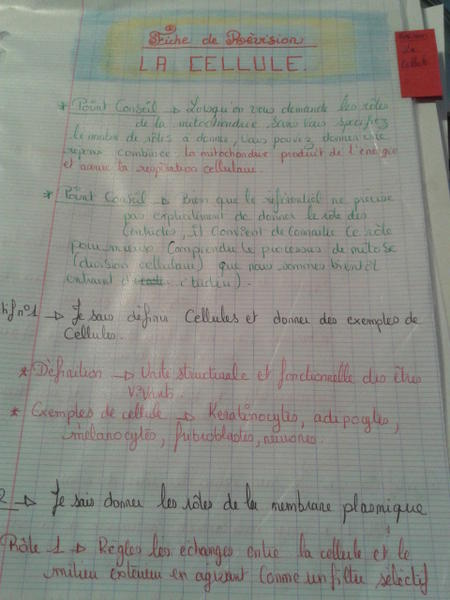 Fiche de Révision
LA CELLULE.
La
Cellule
* Point Conseil → Lorsqu'on vous demande les rôles
de la mitochondrie sans vous spécifier
le nombre de rôles à donner, vous pouvez donner une
réponse combinée : la mitochondrie produit de l'énergie
et assure la respiration cellulaire.
* Point Conseil → Bien que le référentiel ne précise
pas explicitement de donner le rôle des
centrioles, il convient de connaître ce rôle
pour mieux comprendre le processus de mitose
(division cellulaire) que nous sommes bientôt
entrain d'
n°1 → Je sais définir Cellules et donner des exemples de
Cellules.
* Définition → Unité structurale et fonctionnelle des êtres
Vivants.
* Exemples de cellule → Kératinocytes, adipocytes,
mélanocytes, fibroblastes, neurones.
2 → Je sais donner les rôles de la membrane plasmique
Rôle 1 → Règles les échanges entre la cellule et le
milieu extérieur en agissant comme un filtre sélectif